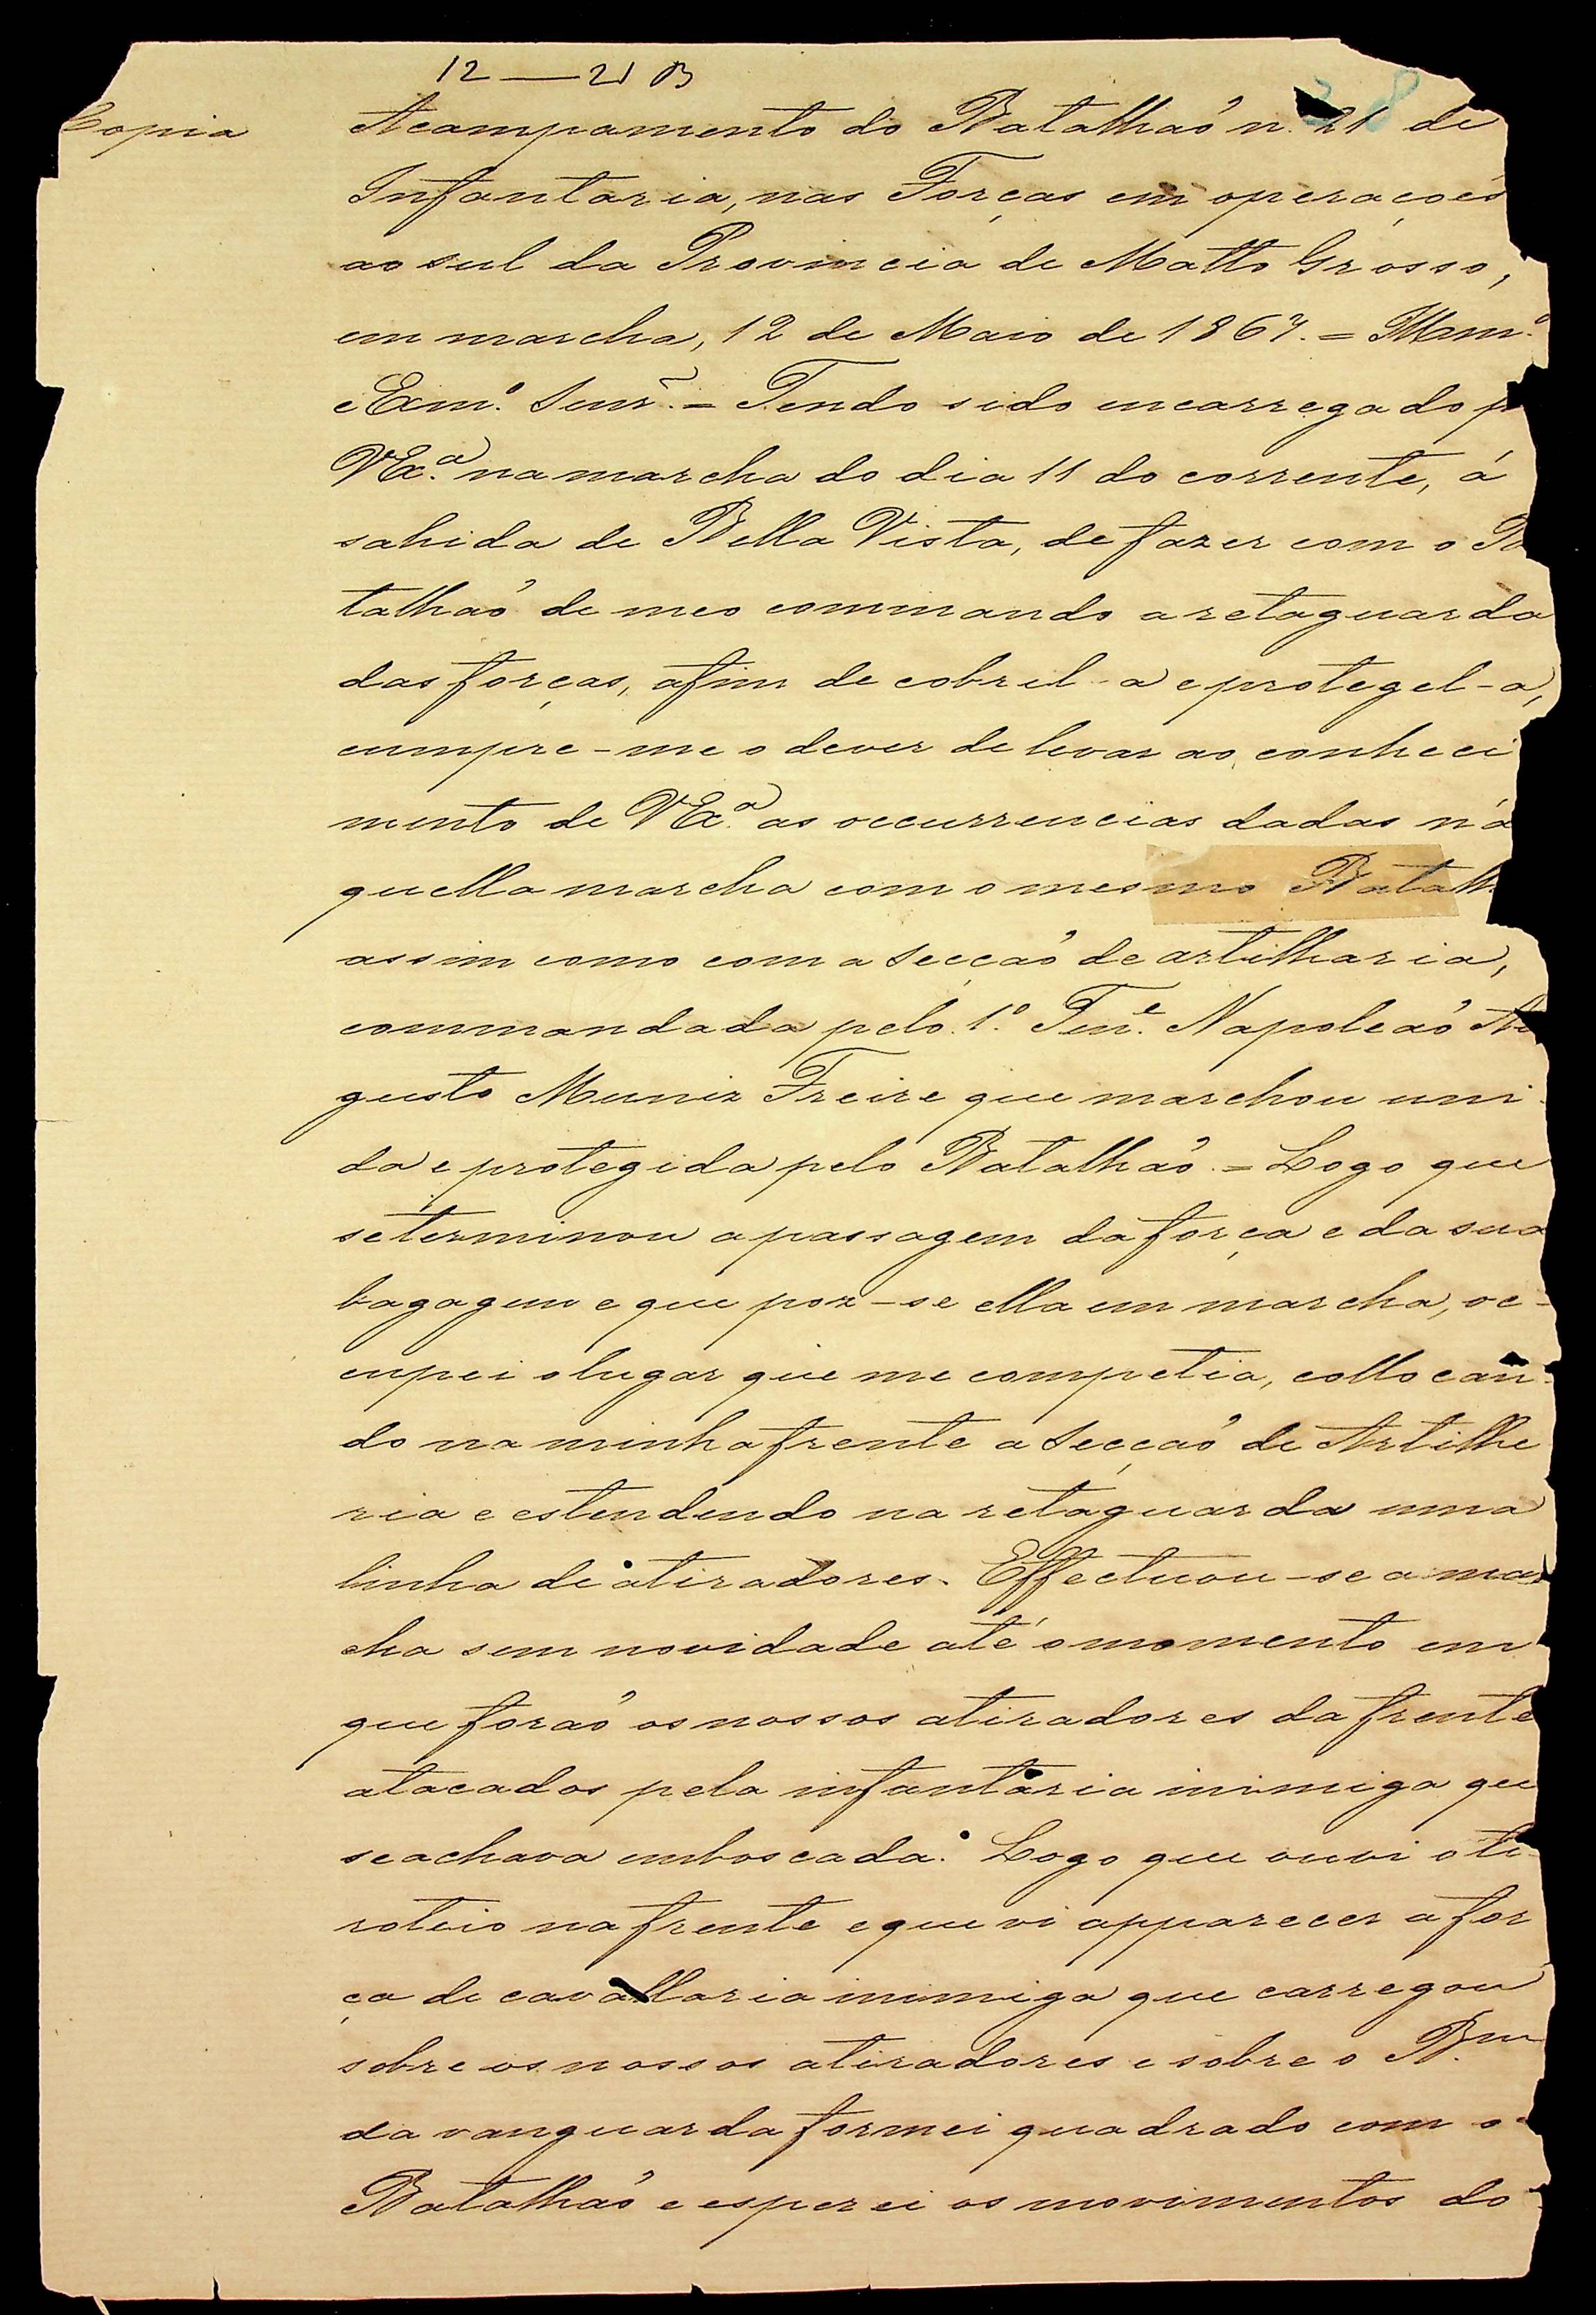 12 — 21 B
Copia
Acampamento do Batalhaõ n. 21 de
Infantaria, nas Forças em operaçoes
ao sul da Provincia de Matto Grosso,
em marcha, 12 de Maio de 1867. = Illmº
e Exmº. Senr. = Tendo sido encarregado p
VExª. na marcha do dia 11 do corrente, á
sahida de Bella Vista, de fazer com o Ba
talhaõ de meo commando a retaguarda
das forças, afim de cobril-a e protegel-a,
cumpre-me o dever de levar ao conheci
mento de VExª. as occurrencias dadas n'a
quella marcha com o mesmo Batalh
assim como com a Secçaõ de artilharia,
commandada pelo 1º Tene. Napoleaõ Au
gusto Muniz Freire que marchou uni
da e protegida pelo Batalhaõ. = Logo que
se terminou a passagem da força e da sua
bagagem e que poz-se ella em marcha, oc-
cupei o lugar que me competia, collocan-
do na minha frente a Secçaõ de Artilhe
ria e estendendo na retaguarda uma
linha de atiradores. Effectuou-se a mar
cha sem novidade até o momento em
que foraõ os nossos atiradores da frente
atacados pela infantaria inimiga que
se achava emboscada. Logo que ouvi o ti
roteio na frente e que vi apparecer a for
ça de cavallaria inimiga que carregou
sobre os nossos atiradores e sobre o Bm.
da vanguarda formei quadrado com o
Batalhaõ e esperei os movimentos do